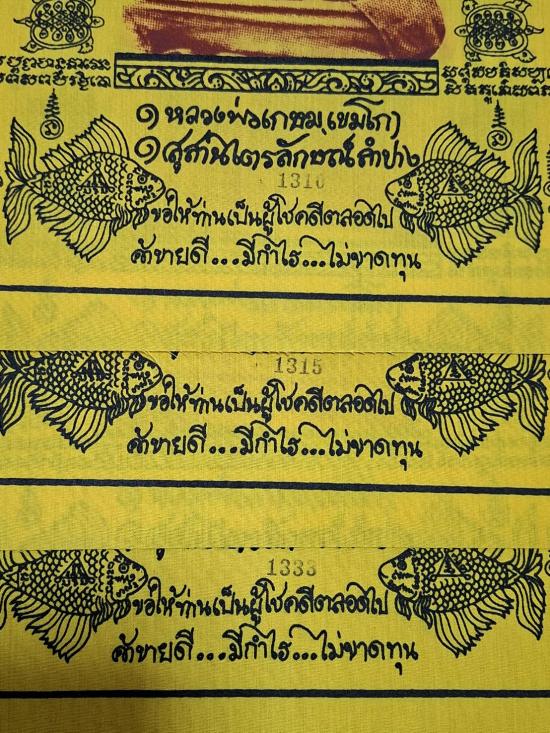 ๑ หลวงพ่อเกษม (เขมโก)
๑ สุสานไตรลักษณ์ ลำปาง
1310
ขอให้ท่านเป็นผู้โชคดีตลอดไป
ค้าขายดี...มีกำไร...ไม่ขาดทุน
1315
ขอให้ท่านเป็นผู้โชคดีตลอดไป
ค้าขายดี...มีกำไร...ไม่ขาดทุน
1333
ขอให้ท่านเป็นผู้โชคดีตลอดไป
ค้าขายดี...มีกำไร...ไม่ขาดทุน